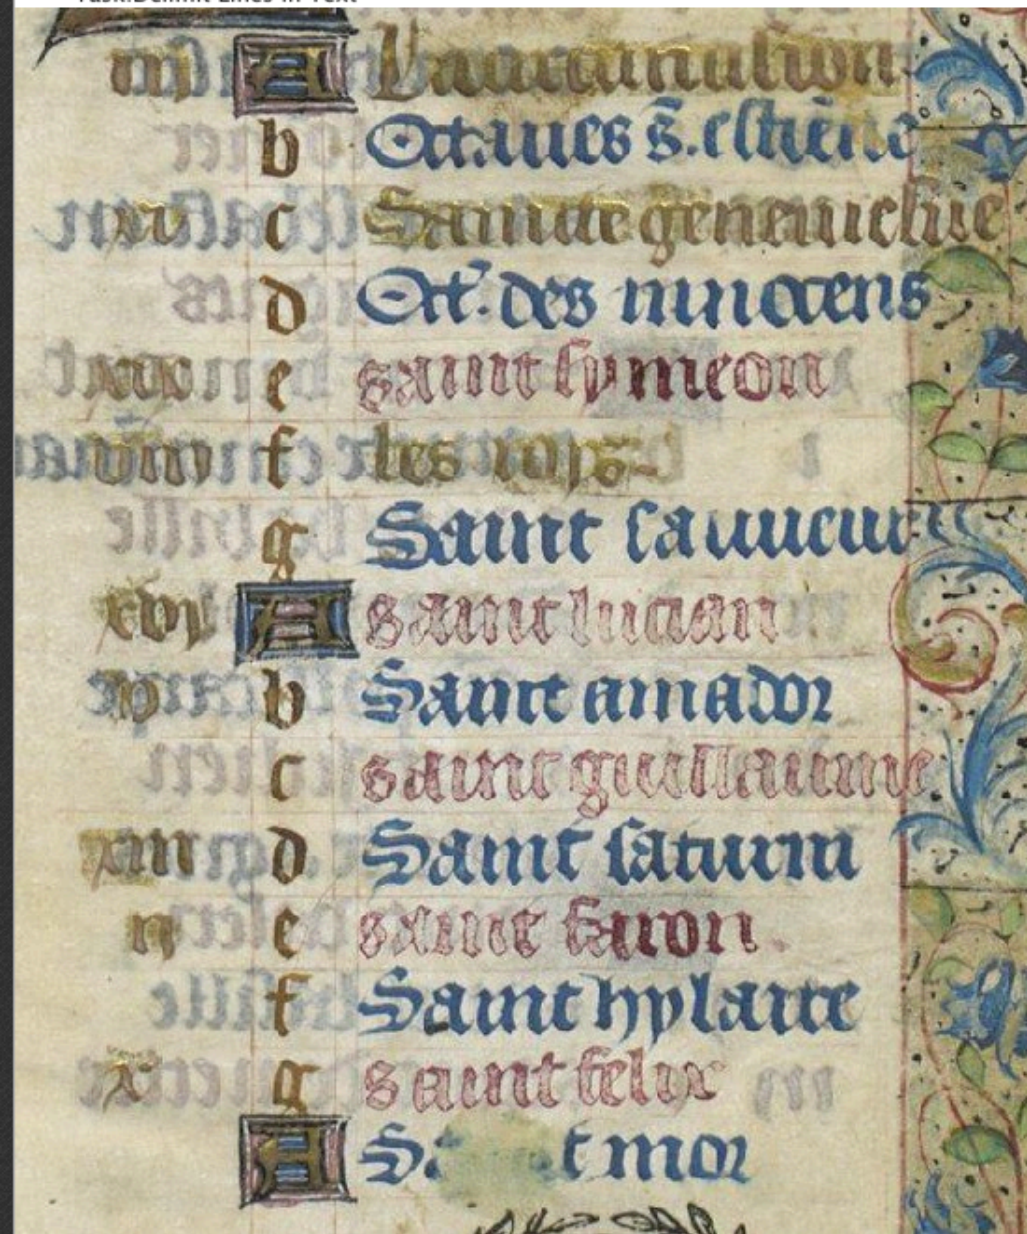 A La circuncision
b Octaues s. estiene
c Sainte geneuiefue
d Oct. des innocens
e saint symeon
f les rois
g Saint sauueur
A saint lucian
b Saint amador
c saint guillaume
d Saint saturni
e saint fauon
f Saint hylaire
g saint felix
A t mor